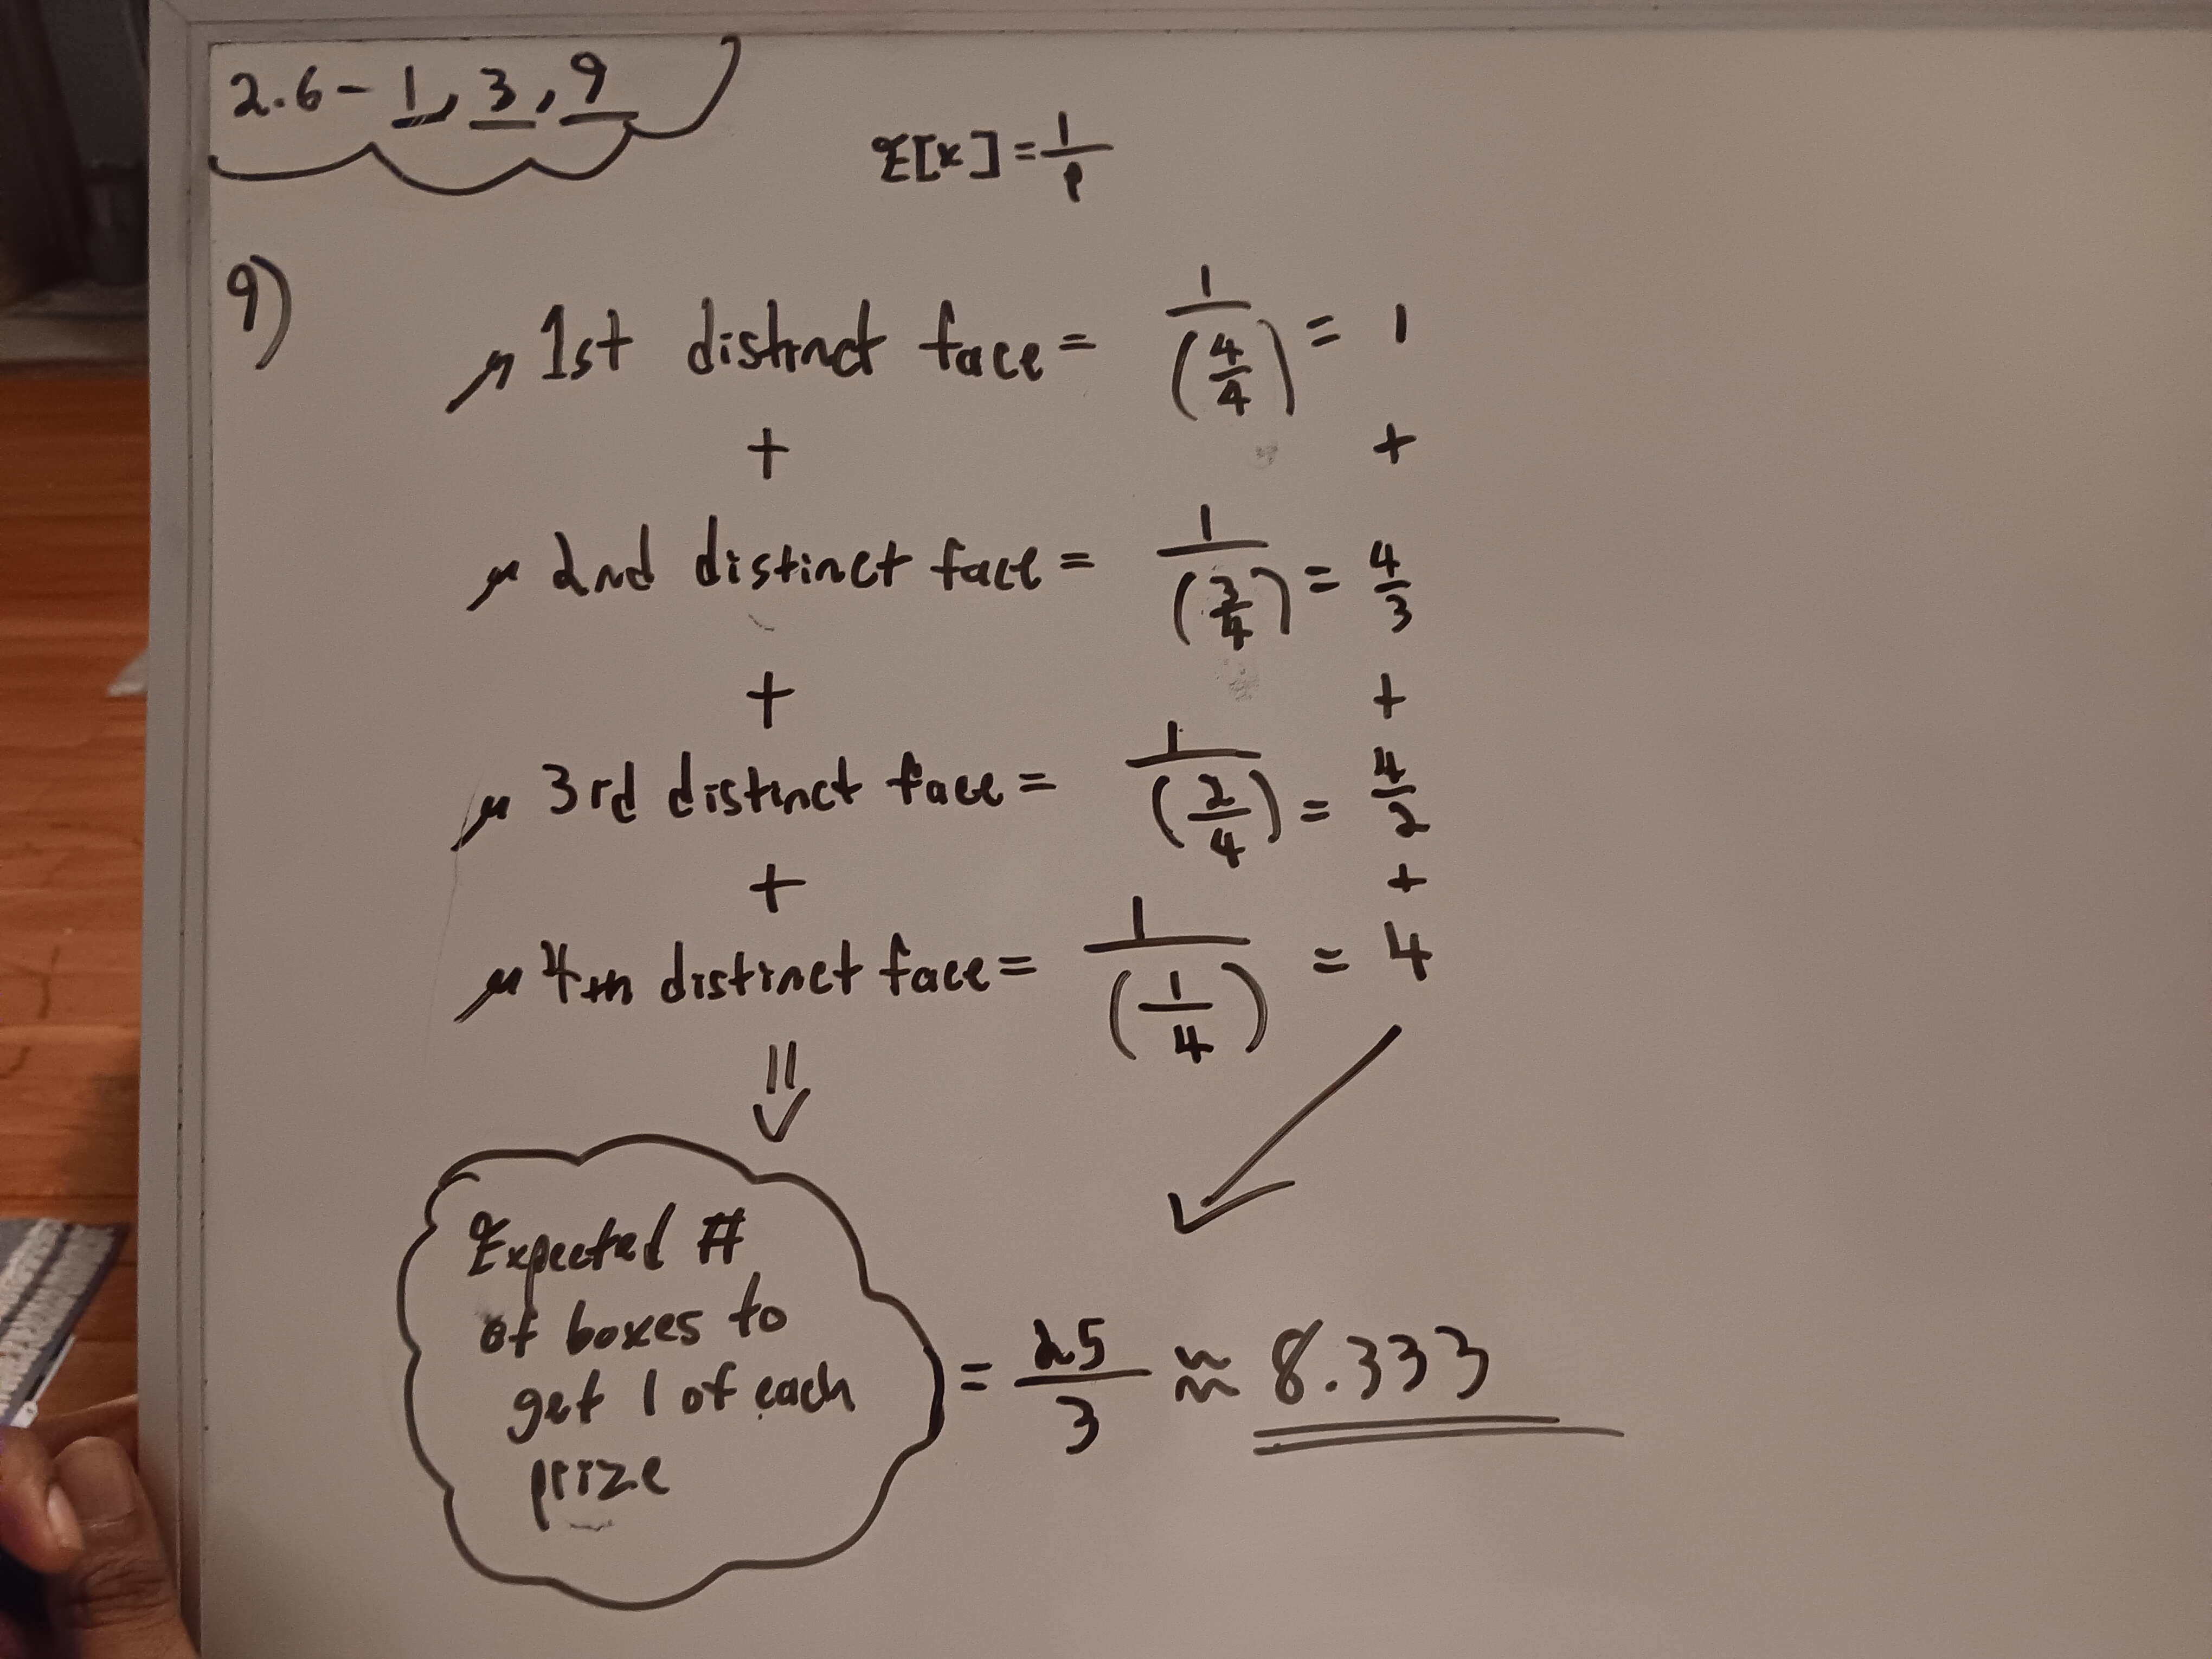 2.6 - 1, 3, 9
E[x] = 1/p
9)
μ 1st distinct face = 1/(4/4) = 1
+ +
μ 2nd distinct face = 1/(3/4) = 4/3
+ +
μ 3rd distinct face = 1/(2/4) = 4/2
+ +
μ 4th distinct face = 1/(1/4) = 4
Expected #
of boxes to
get 1 of each
prize
= 25/3 ≈ 8.333